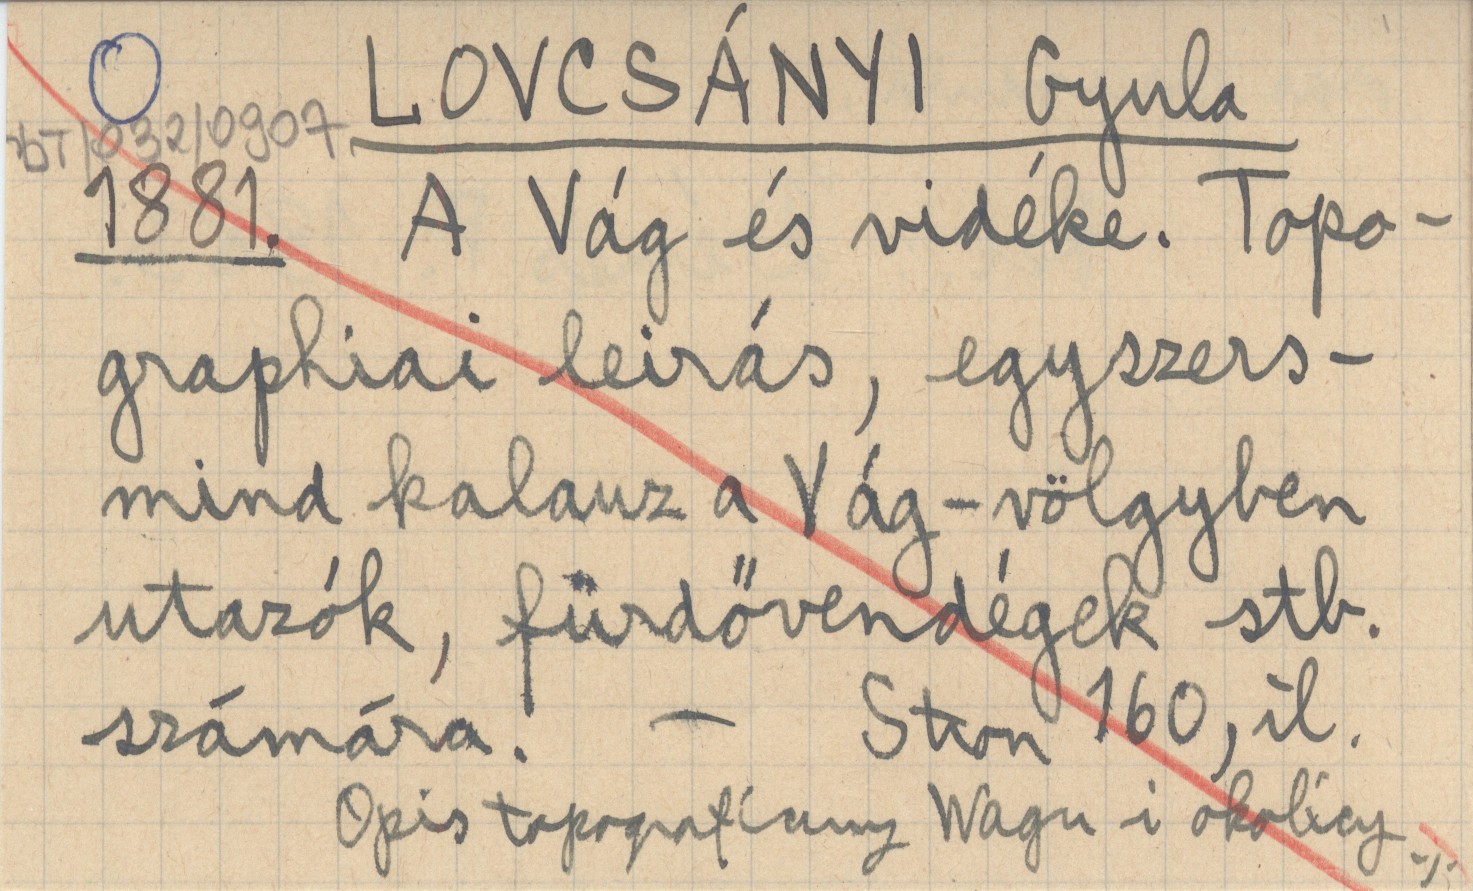 O LOVCSÁNYI Gyula
bT/032/0907.
1881. A Vág és vidéke. Topo-
graphiai leirás, egyszers-
mind kalauz a Vág-völgyben
utazók, fürdővendégek stb.
számára. — Stron 160, il.
Opis topograficzny Wagu i okolicy